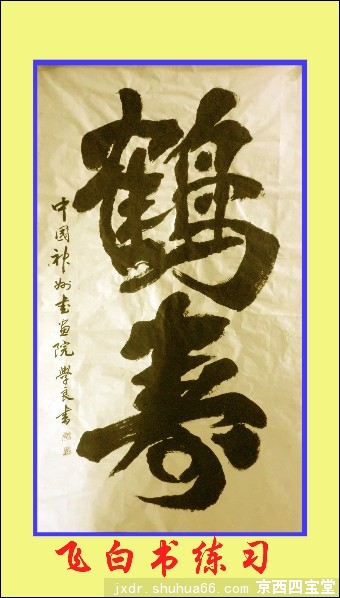 鶴
寿
中國神州書畫院 學良書
飞白书练习
jxdr.shuhua66.com 京西四宝堂